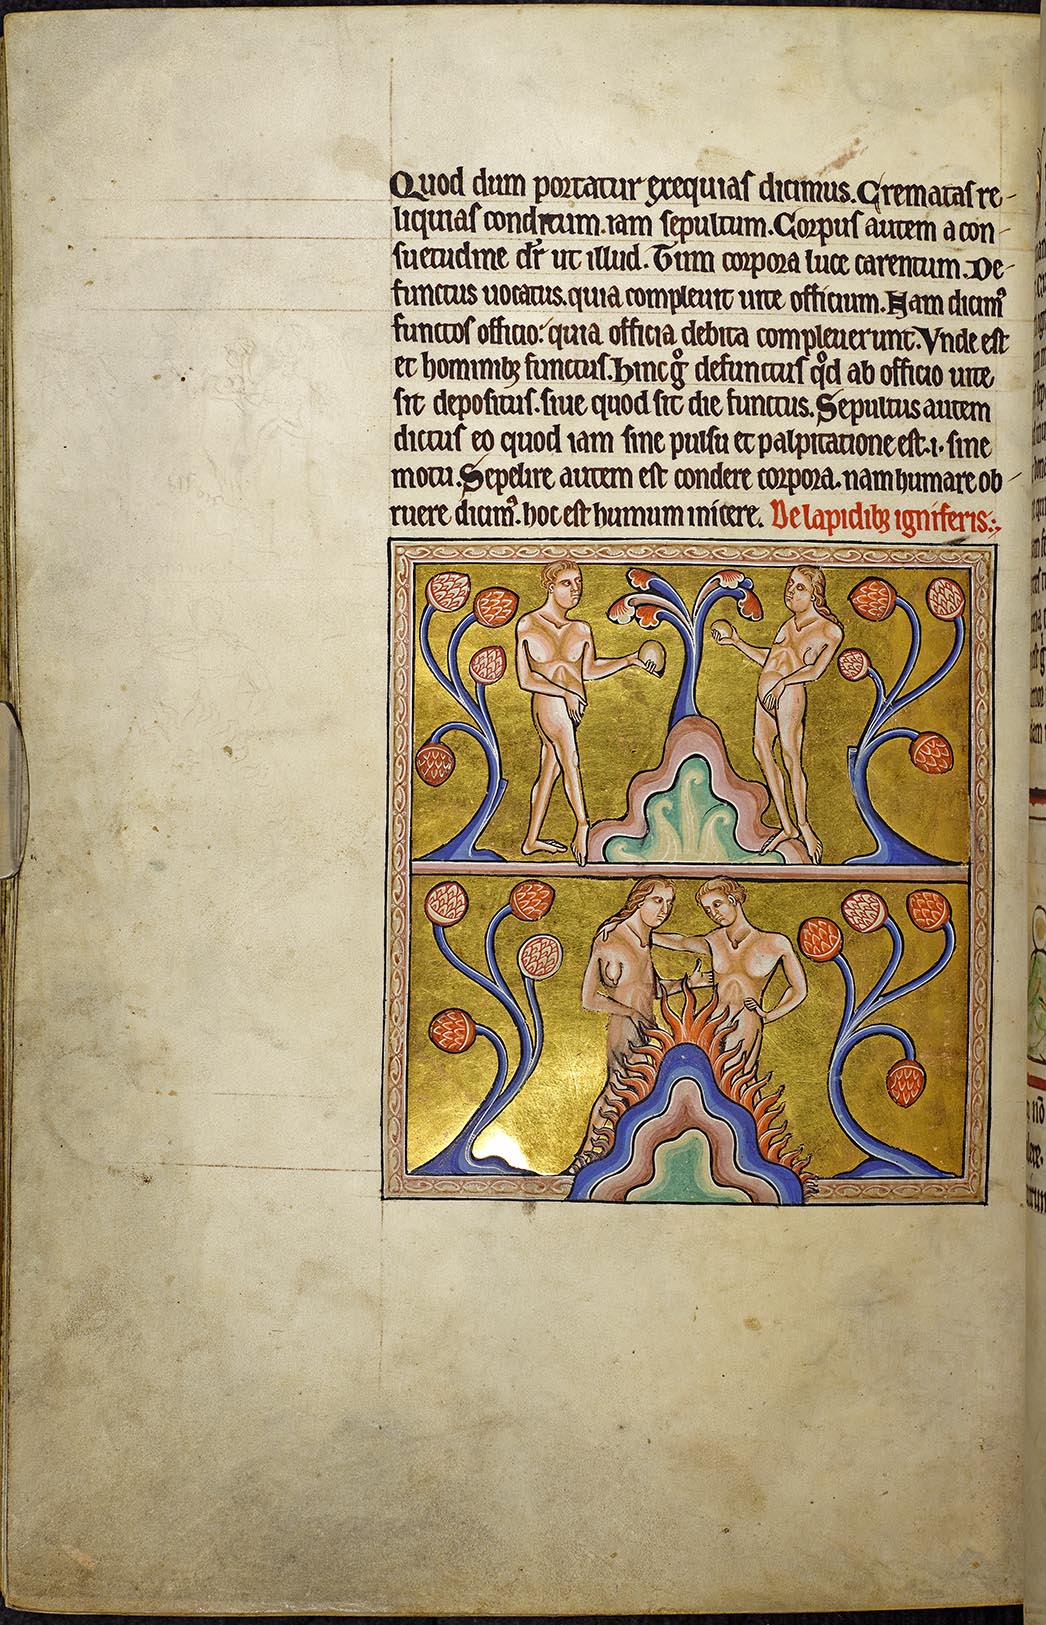 Quod dum portatur exequias dicimus. Crematas re-
liquias conditum. iam sepultum. Corpus autem a con-
suetudine dr̄ ut illud. Tum corpora luce carentum. De-
functus uocatus. quia compleuit uite officium. Nam dicim᷒
functos officio. quia officia debita compleuerunt. Vnde est
et hominibꝫ functus. Hinc gͦ defunctus qͦd ab officio uite
sit depositus. siue quod sit die functus. Sepultus autem
dictus eo quod iam sine pulsu et palpitatione est .i. sine
motu. Sepelire autem est condere corpora. nam humare ob-
ruere dicim᷒. hoc est humum inicere. De lapidibꝫ igniferis: